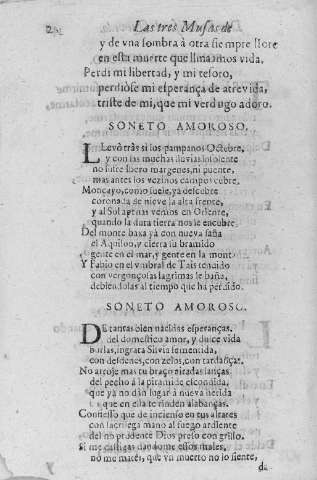 Las tres Musas de
y de vna sombra à otra siempre llore
en esta muerte que llamamos vida,
Perdi mi libertad, y mi tesoro,
perdiòse mi esperança de atrevida,
triste de mi, que mi verdugo adoro.
SONETO AMOROSO.
LLevò tràs si los pampanos Octubre,
y con las muchas lluvias insolente
no sufre Ibero margenes, ni puente,
mas antes los vezinos campos cubre.
Moncayo, como suele, ya descubre
coronada de nieve la alta frente,
y al Sol apenas vemos en Oriente,
quando la dura tierra nos le encubre.
Del monte baxa yà con nueva saña
el Aquilon, y cierra su bramido
gente en el mar, y gente en la mont
Y Fabio en el vmbral de Tais tendido
con vergonçosas lagrimas le baña,
debiendolas al tiempo que ha perdido.
SONETO AMOROSO.
DE tantas bien nacidas esperanças,
del domestico amor, y dulce vida
burlas, ingrata Silvia fementida,
con desdenes, con zelos, con tardanças.
No arroje mas tu braço airadas lanças
del pecho à la piramide escondida,
que yà no dàn lugar à nueva herida
las que en ella te rinden alabanças.
Confiesso que de incienso en tus altares
con sacrilega mano al fuego ardiente
del no prudente Dios preso con grillo.
Si me castigas dandome essos males,
no me mates, que vn muerto no lo siente,
da